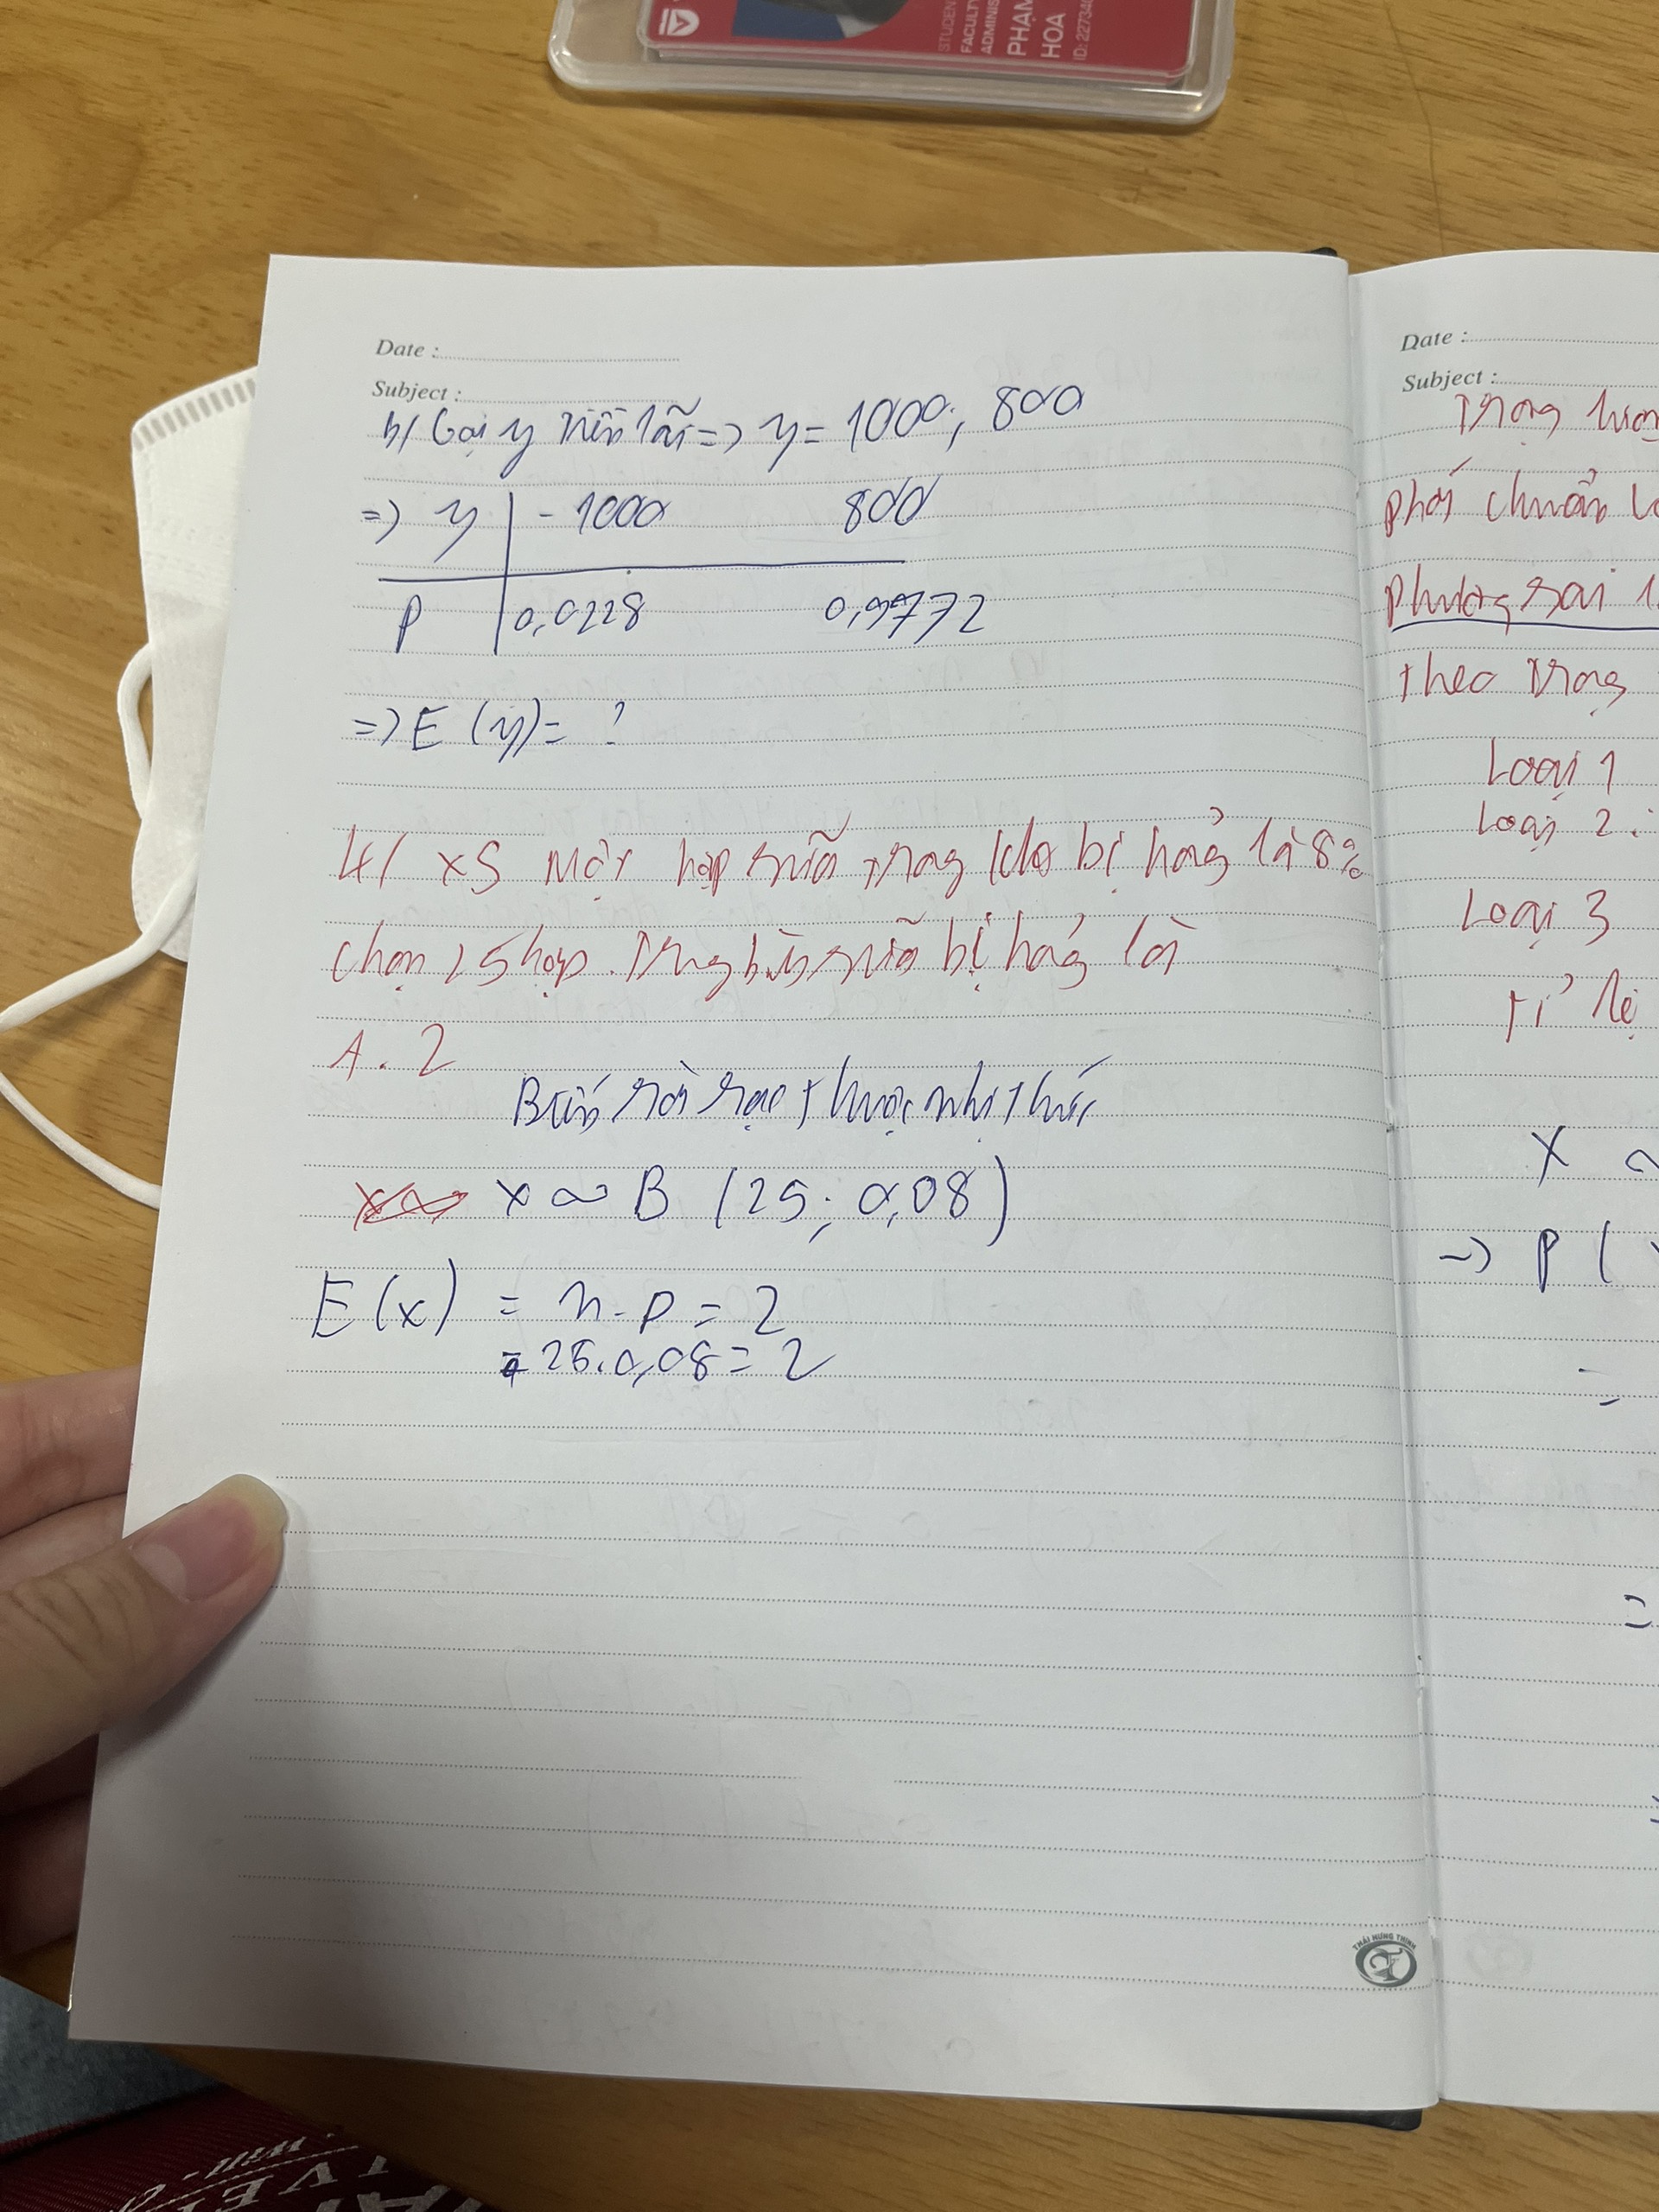 STUDEN
FACULTY
ADMINIS
PHẠM
HOA
ID: 22734
Date :
Subject :
b/ Gọi y tiền lãi => y = 1000; 800
=> y | - 1000 800
P | 0,0228 0,9772
=> E (y) = ?
4/ XS một hộp sữa trong kho bị hỏng là 8%
chọn 25 hộp. Trung bình sữa bị hỏng là
A. 2
Biến rời rạc thuộc nhị thức
X ~ B (25; 0,08)
E(x) = n. p = 2
= 25.0,08 = 2
THÁI HƯNG THỊNH
Date :
Subject :
Trọng lượn
phối chuẩn
phương sai 1
theo trọng
Loại 1
Loại 2 :
Loại 3
tỉ lệ
X ~
-> P (
=
=